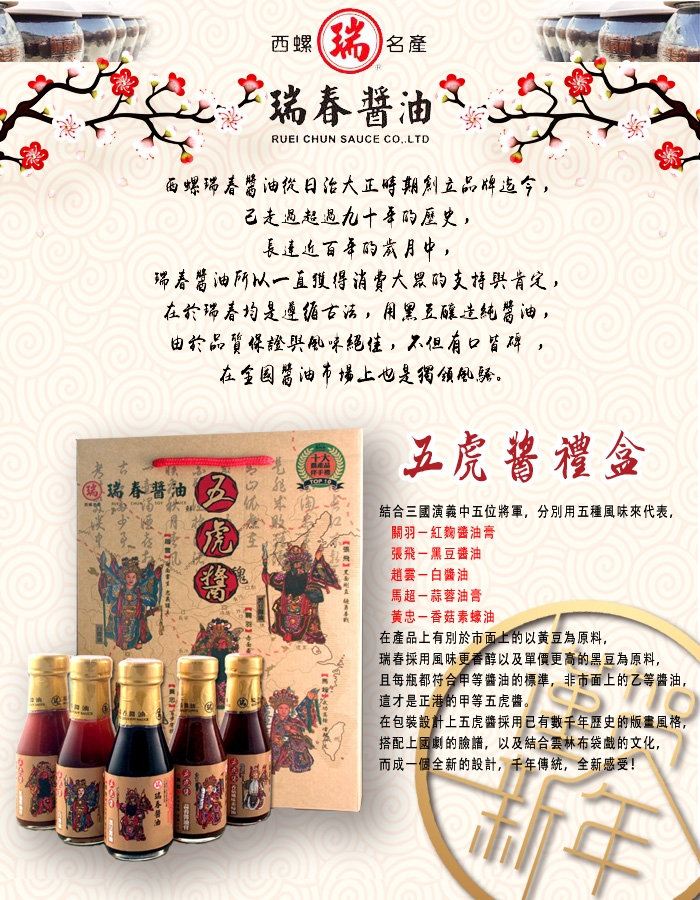 西螺 瑞 名產
瑞春醬油
RUEI CHUN SAUCE CO,.LTD
西螺瑞春醬油從日治大正時期創立品牌迄今，
已走過超過九十年的歷史，
長達近百年的歲月中，
瑞春醬油所以一直獲得消費大眾的支持與肯定，
在於瑞春均是遵循古法，用黑豆釀造純醬油，
由於品質保證與風味絕佳，不但有口皆碑 ，
在全國醬油市場上也是獨領風騷。
五虎醬禮盒
結合三國演義中五位將軍，分別用五種風味來代表，
關羽－紅麴醬油膏
張飛－黑豆醬油
趙雲－白醬油
馬超－蒜蓉油膏
黃忠－香菇素蠔油
在產品上有別於市面上的以黃豆為原料，
瑞春採用風味更香醇以及單價更高的黑豆為原料，
且每瓶都符合甲等醬油的標準，非市面上的乙等醬油，
這才是正港的甲等五虎醬。
在包裝設計上五虎醬採用已有數千年歷史的版畫風格，
搭配上國劇的臉譜，以及結合雲林布袋戲的文化，
而成一個全新的設計，千年傳統，全新感受！
瑞 瑞春醬油
五虎醬
十大
TOP 10
瑞春醬油
新年